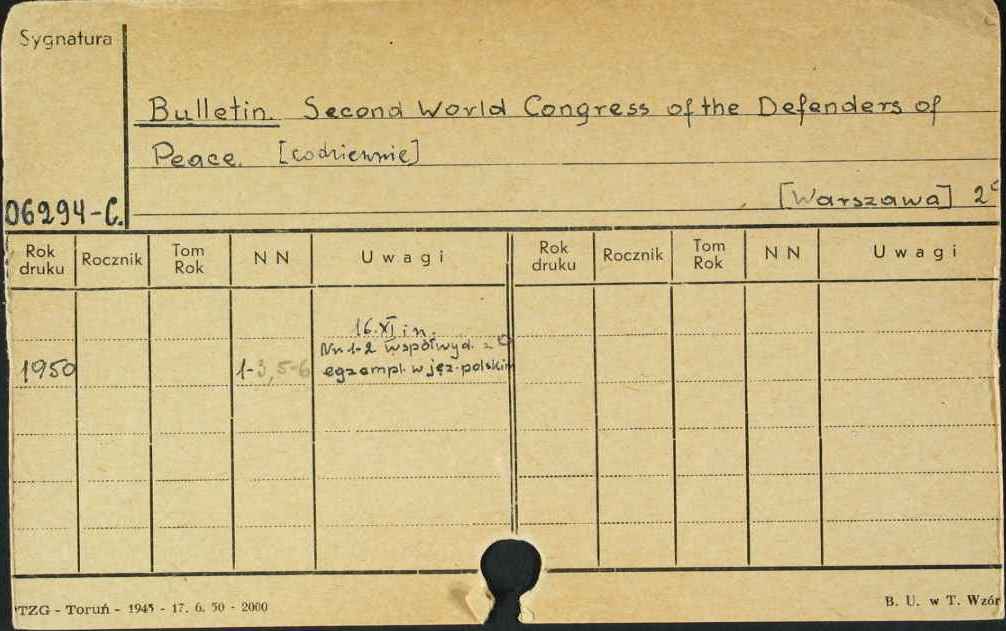 Sygnatura
Bulletin. Second World Congress of the Defenders of
Peace. [codziennie]
06294-C.
[Warszawa] 2°
Rok druku Rocznik Tom Rok NN Uwagi Rok druku Rocznik Tom Rok NN Uwagi
16.XI i n.
Nr 1-2 współwyd. z
1950 1-3, 5-6 egzempl. w jęz. polskim
TZG - Toruń - 1945 - 17. 6. 50 - 2000
B. U. w T. Wzór